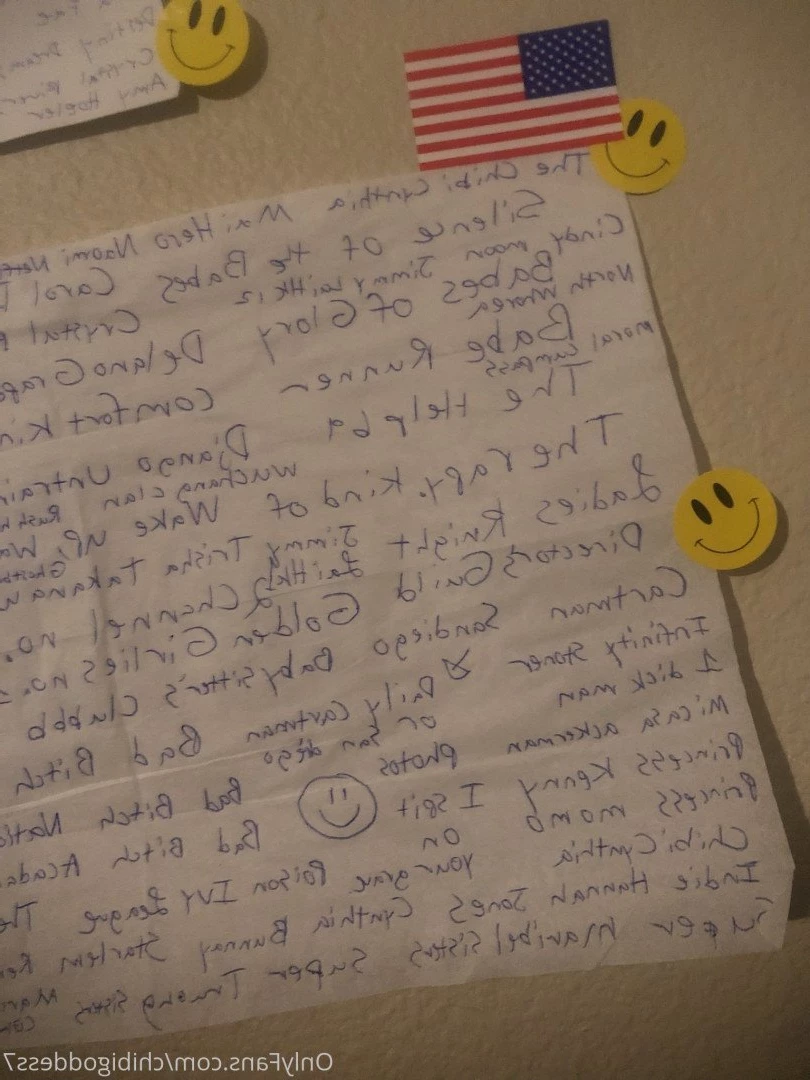 Destiny Dream
Crystal River
Amy
The Chibi Cynthia Mai Hero Naomi
Silence of the Babes Carol
Cindy moon Jimmy
Babes of Glory Crystal
North
Babe Runner Delano Grape
moral compass
The Help ba Comfort Kin
Therapy. Kind of Django Untrain
wuchang clan Rush
Ladies Knight Jimmy Wake up, Wa
Directors Guild Trisha Takanawa
Channel no.
Cartman Sandiego Golden Girlies no.
Infinity stoner & Babysitter's Clubbb
1 dick man Daily Cartman Bad Bitch
or san diego
Micasa ackerman photos Bad Bitch Natio
Princess Kenny I spit Bad Bitch Acade
Princess momo on
Chibi Cynthia your grave Poison Ivy League The
Indie Hannah Jones Cynthia Bunnay Starlem
Super Maribel Sisters Super Truong Sisters
OnlyFans.com/chibigoddess7